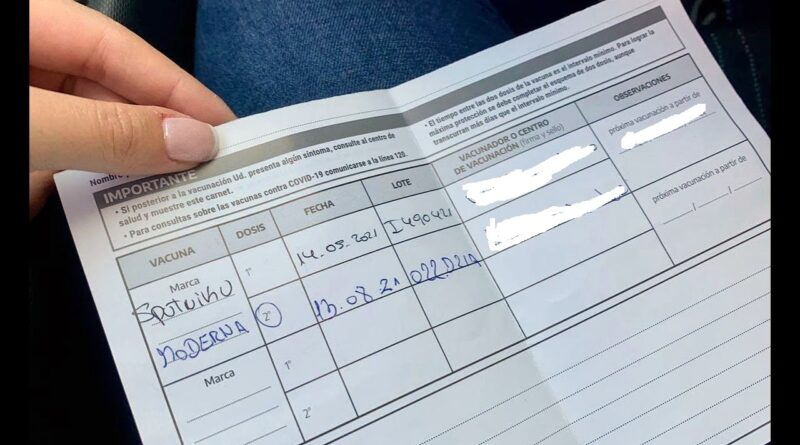 Nombre
IMPORTANTE
• Si posterior a la vacunación Ud. presenta algún síntoma, consulte al centro de
salud y muestre este carnet.
• Para consultas sobre las vacunas contra COVID-19 comunicarse a la línea 120.
• El tiempo entre las dos dosis de la vacuna es el intervalo mínimo. Para lograr la
máxima protección se debe completar el esquema de dos dosis, aunque
transcurran más días que el intervalo mínimo.
VACUNA
DOSIS
FECHA
LOTE
VACUNADOR O CENTRO
DE VACUNACIÓN (firma y sello)
OBSERVACIONES
Marca
1°
14.05.2021
I490421
próxima vacunación a partir de
2°
13.08.21
022D21A
próxima vacunación a partir de
MODERNA
Marca
1°
2°